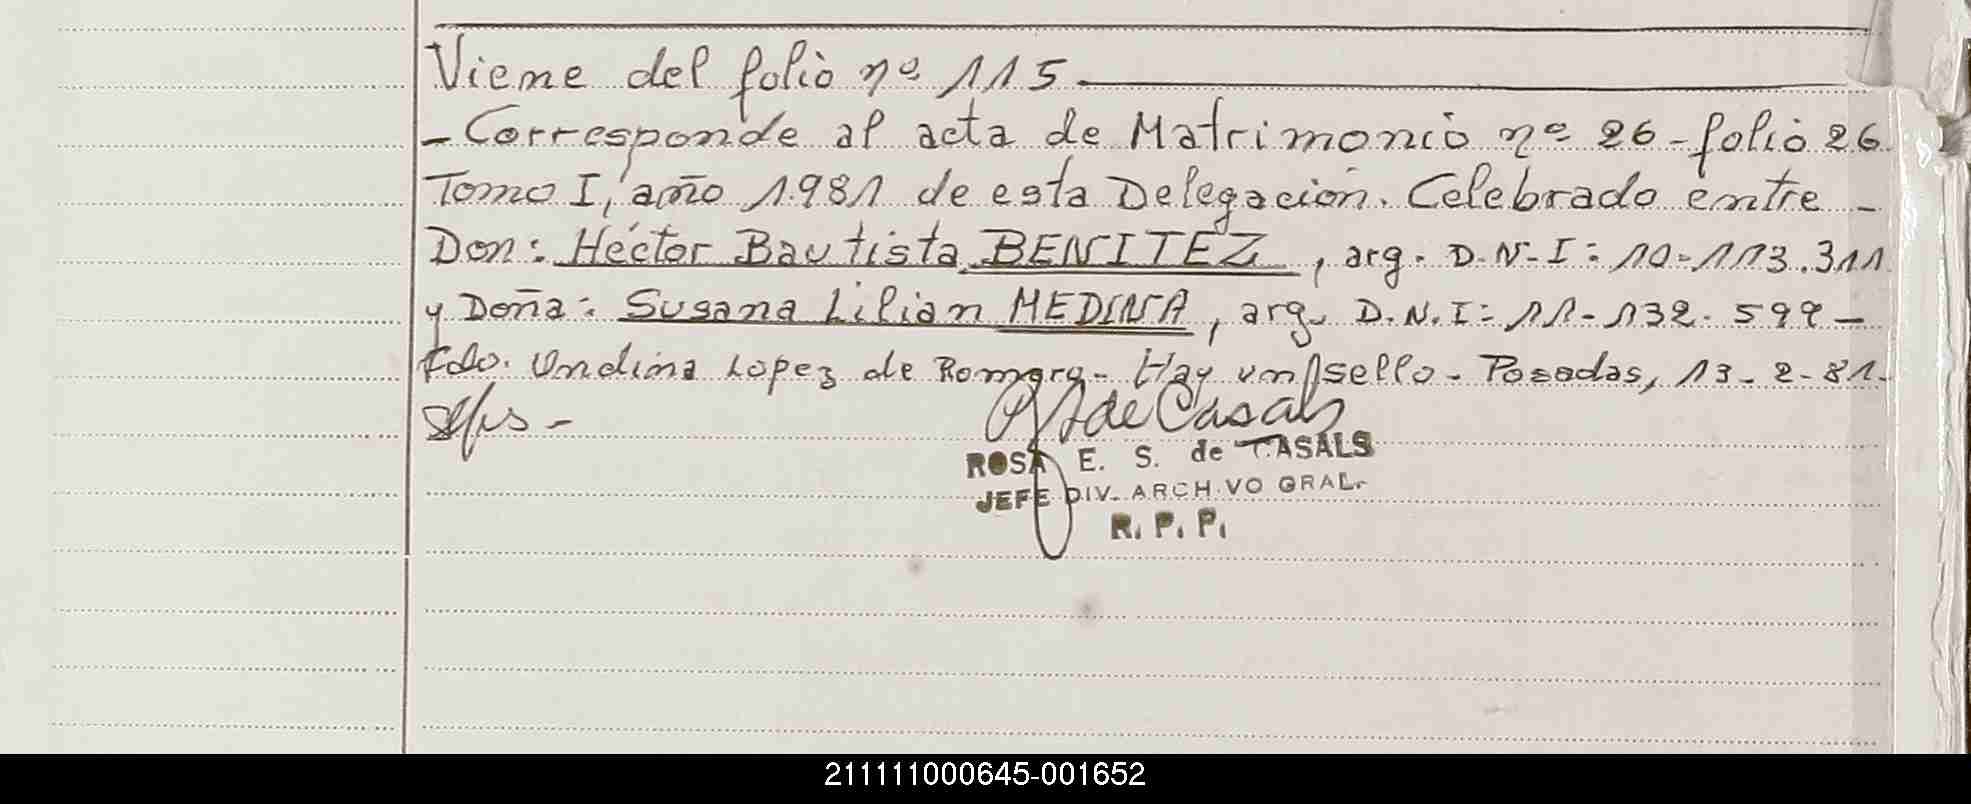 Viene del folio nº 115
- Corresponde al acta de Matrimonio nº 26 - folio 26
Tomo I, año 1.981 de esta Delegación. Celebrado entre -
Don: Héctor Bautista BENITEZ, arg. D.N-I: 10-113.311
y Doña: Susana Lilian MEDINA, arg. D.N.I: 11-132.599 -
Fdo. Undina Lopez de Romero - Hay un sello - Posadas, 13-2-81.-
de Casals
ROSA E. S. de CASALS
JEFE DIV. ARCHIVO GRAL.
R. P. P.
211111000645-001652